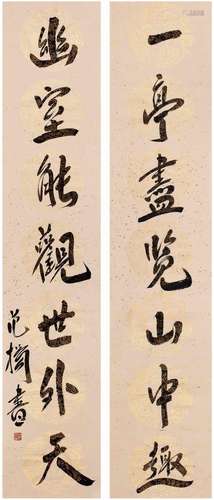 一亭盡览山中趣
幽室能觀世外天
范摛書